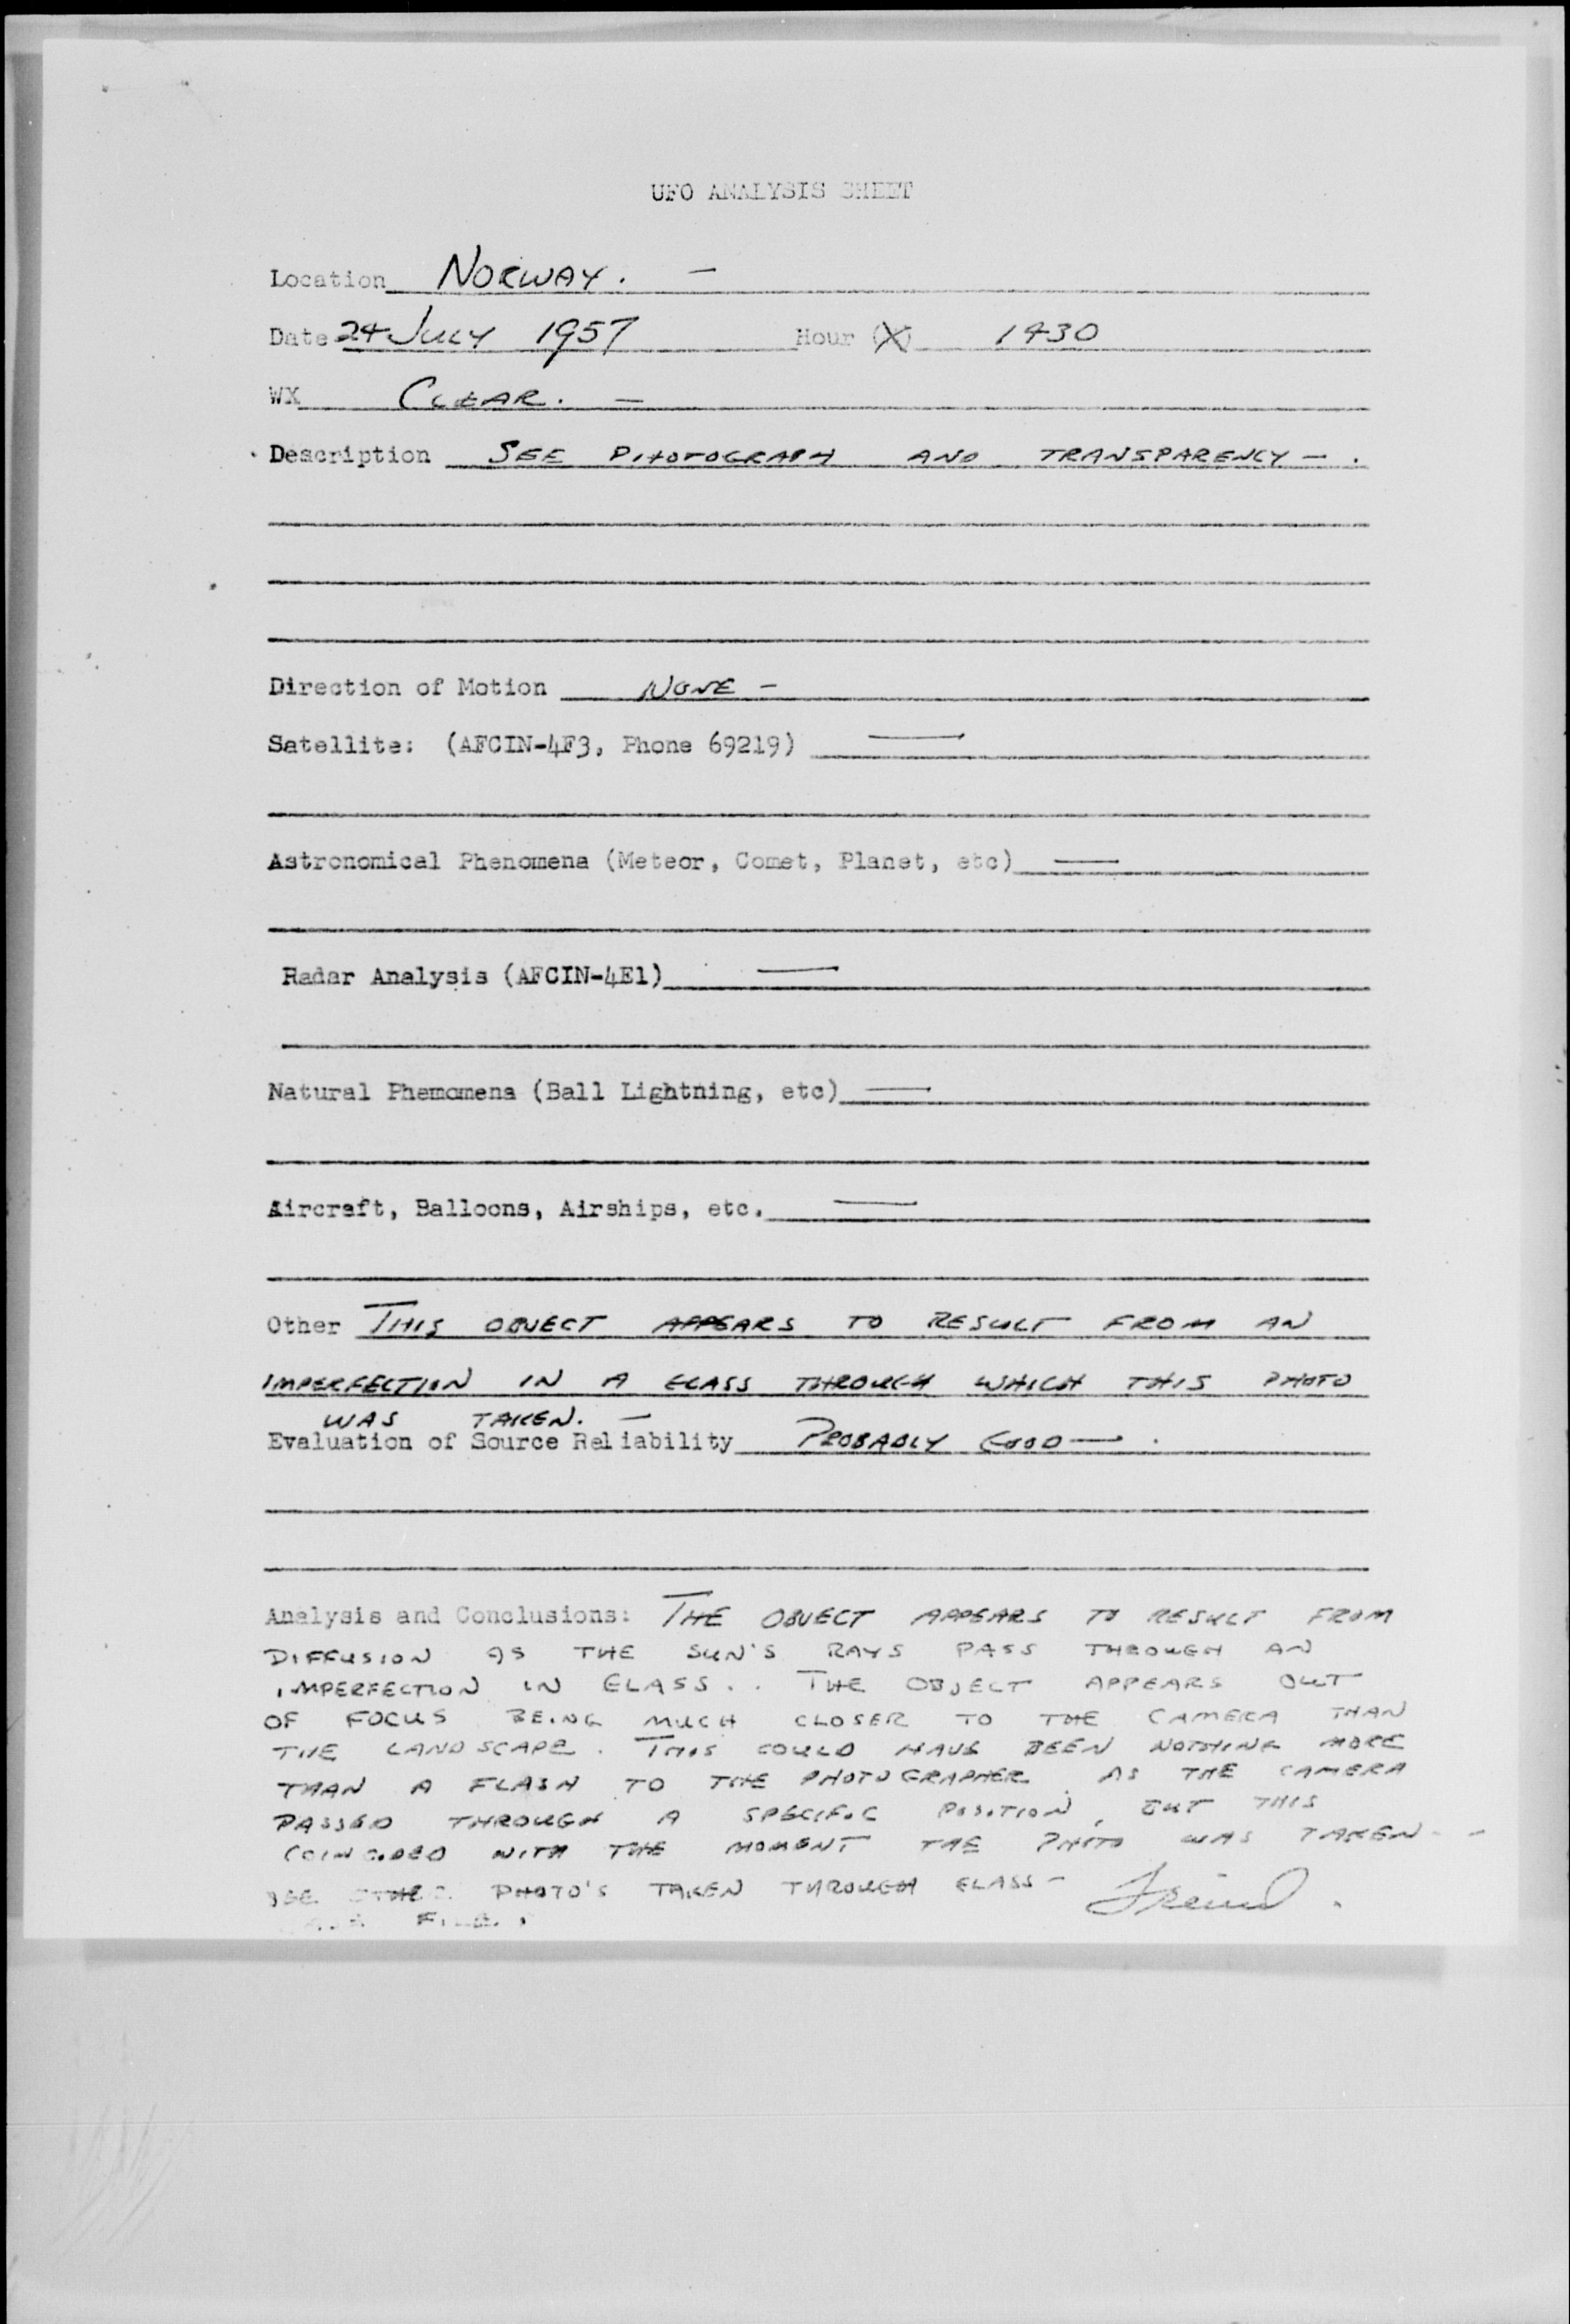 UFO ANALYSIS SHEET
Location NORWAY. —
Date 24 JULY 1957 Hour (X) 1430
WX CLEAR. —
Description SEE PHOTOGRAPH AND TRANSPARENCY — .
Direction of Motion NONE —
Satellite: (AFCIN-4F3, Phone 69219) —
Astronomical Phenomena (Meteor, Comet, Planet, etc) —
Radar Analysis (AFCIN-4E1) —
Natural Phemomena (Ball Lightning, etc) —
Aircraft, Balloons, Airships, etc. —
Other THIS OBJECT APPEARS TO RESULT FROM AN
IMPERFECTION IN A GLASS THROUGH WHICH THIS PHOTO
WAS TAKEN. —
Evaluation of Source Reliability PROBABLY GOOD — .
Analysis and Conclusions: THE OBJECT APPEARS TO RESULT FROM
DIFFUSION AS THE SUN'S RAYS PASS THROUGH AN
IMPERFECTION IN GLASS. . THE OBJECT APPEARS OUT
OF FOCUS BEING MUCH CLOSER TO THE CAMERA THAN
THE LANDSCAPE. THIS COULD HAVE BEEN NOTHING MORE
THAN A FLASH TO THE PHOTOGRAPHER AS THE CAMERA
PASSED THROUGH A SPECIFIC POSITION, BUT THIS
COINCIDED WITH THE MOMENT THE PHOTO WAS TAKEN - -
SEE OTHER PHOTO'S TAKEN THROUGH GLASS —
FILE.